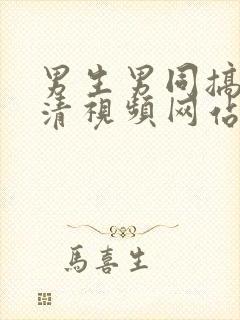 男生男同搞
清視頻网佔
馬喜生